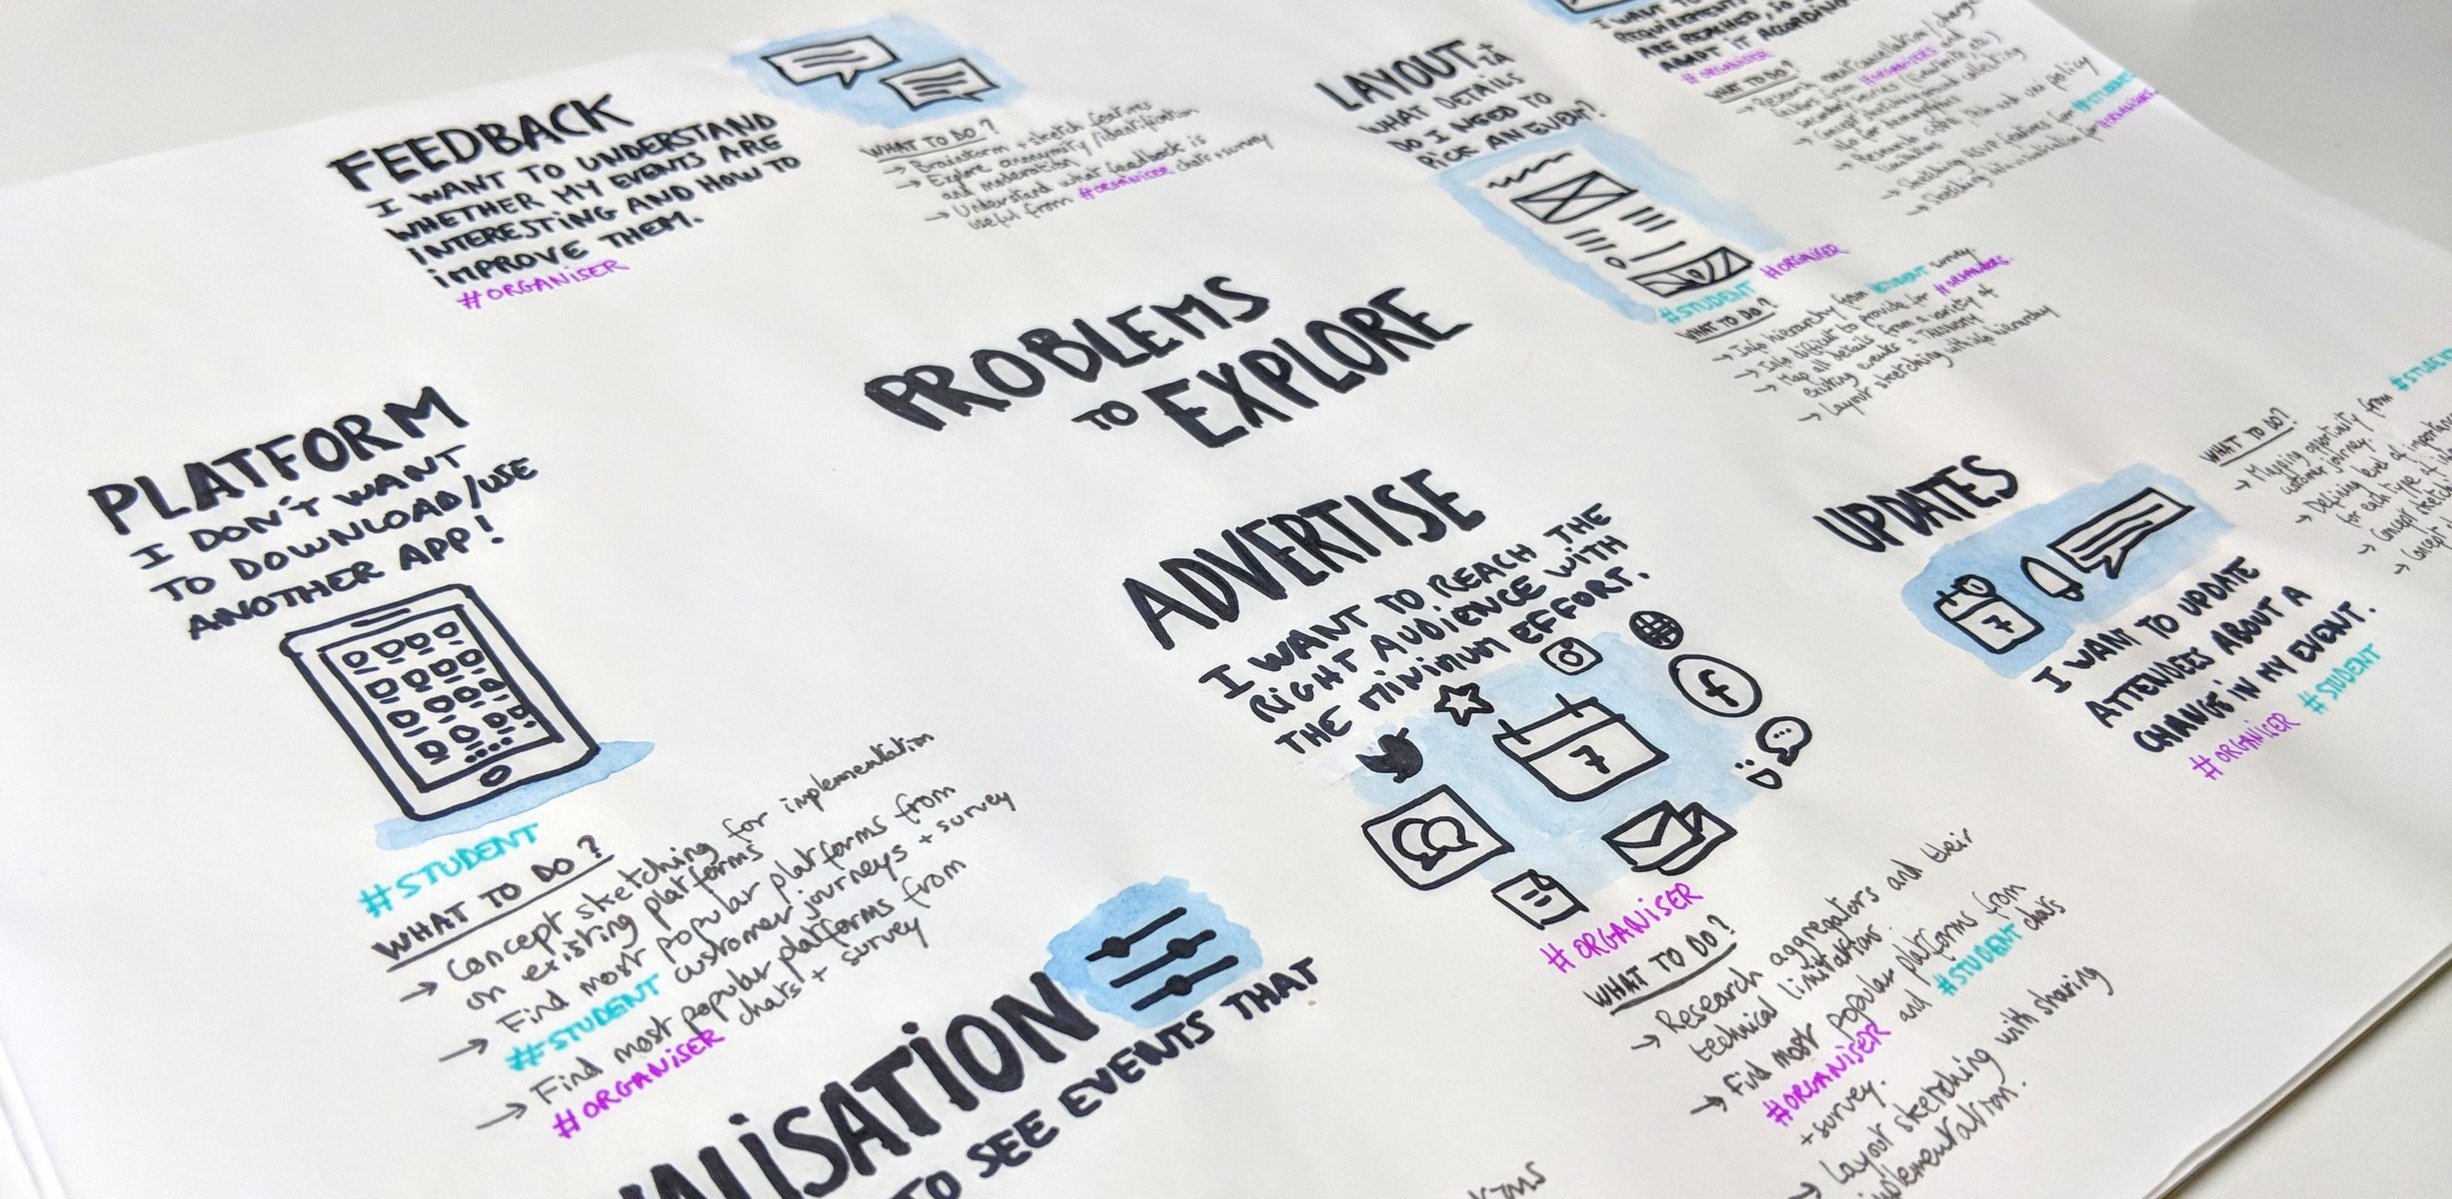 FEEDBACK
I WANT TO UNDERSTAND
WHETHER MY EVENTS ARE
INTERESTING AND HOW TO
IMPROVE THEM.
#ORGANISER
WHAT TO DO?
→ Brainstorm + sketch features
→ Explore anonymity/identification
and moderation
→ Understand what feedback is
useful from #ORGANISER chats + survey
LAYOUT
WHAT DETAILS
DO I NEED TO
PICK AN EVENT?
#STUDENT #ORGANISER
WHAT TO DO?
→ Info hierarchy from #STUDENT survey.
→ Info difficult to provide for #ORGANISERS.
→ Map all details from a variety of
existing events
→ Layout sketching with info hierarchy
I WANT TO
REQUIREMENTS
ARE REACHED, SO I
ADAPT IT ACCORDING
#ORGANISER
WHAT TO DO?
→ Research event cancellation / change
→ Research GDPR
→ Sketching RSVP features for #STUDENT
→ Sketching for #ORGANISER
PROBLEMS
TO EXPLORE
PLATFORM
I DON'T WANT
TO DOWNLOAD/USE
ANOTHER APP!
#STUDENT
WHAT TO DO?
→ Concept sketching for implementation
on existing platforms
→ Find most popular platforms from
#STUDENT customer journeys + survey
→ Find most popular platforms from
#ORGANISER chats + survey
ADVERTISE
I WANT TO REACH THE
RIGHT AUDIENCE WITH
THE MINIMUM EFFORT.
7
f
#ORGANISER
WHAT TO DO?
→ Research aggregators and their
technical limitations.
→ Find most popular platforms from
#ORGANISER and #STUDENT chats
+ survey.
→ Layout sketching with sharing
implementation.
UPDATES
7
I WANT TO UPDATE
ATTENDEES ABOUT A
CHANGE IN MY EVENT.
#ORGANISER #STUDENT
WHAT TO DO?
→ Mapping opportunity from #STUDENT
customer journey.
→ Defining level of importance
for each type of info
→ Concept sketching
→ Concept
ALISATION
TO SEE EVENTS THAT